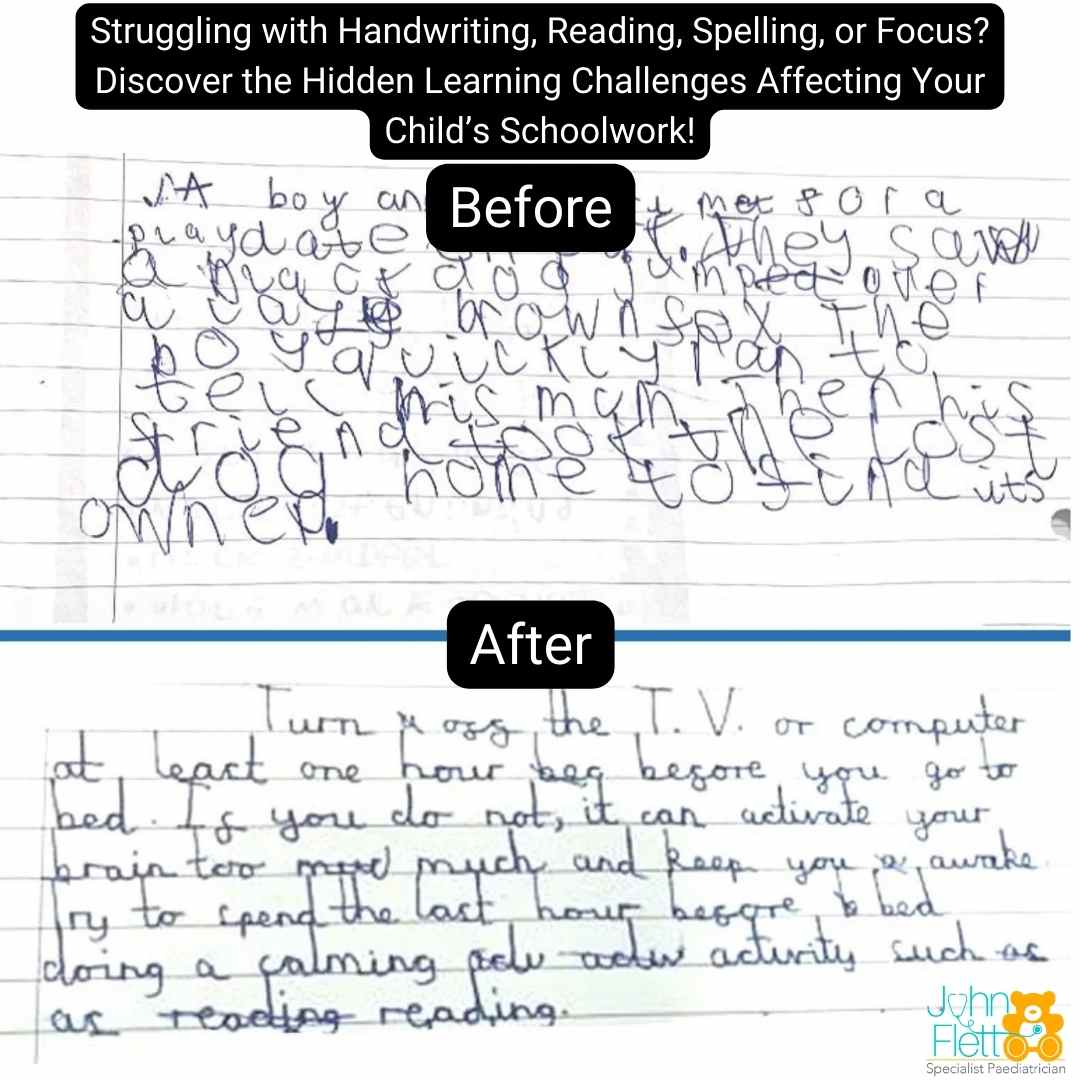 Struggling with Handwriting, Reading, Spelling, or Focus?
Discover the Hidden Learning Challenges Affecting Your
Child's Schoolwork!
Before
A boy an met for a
playdate They saw
a black dog jumped over
a brown fox The
boy quickly ran to
tell his mum Then his
friend took the lost
dog home to find its
owner.
After
Turn off the T.V. or computer
at least one hour bef before you go to
bed. If you do not, it can activate your
brain too much and keep you awake
Try to spend the last hour before bed
doing a calming activity such as
as reading reading.
John
Flett
Specialist Paediatrician